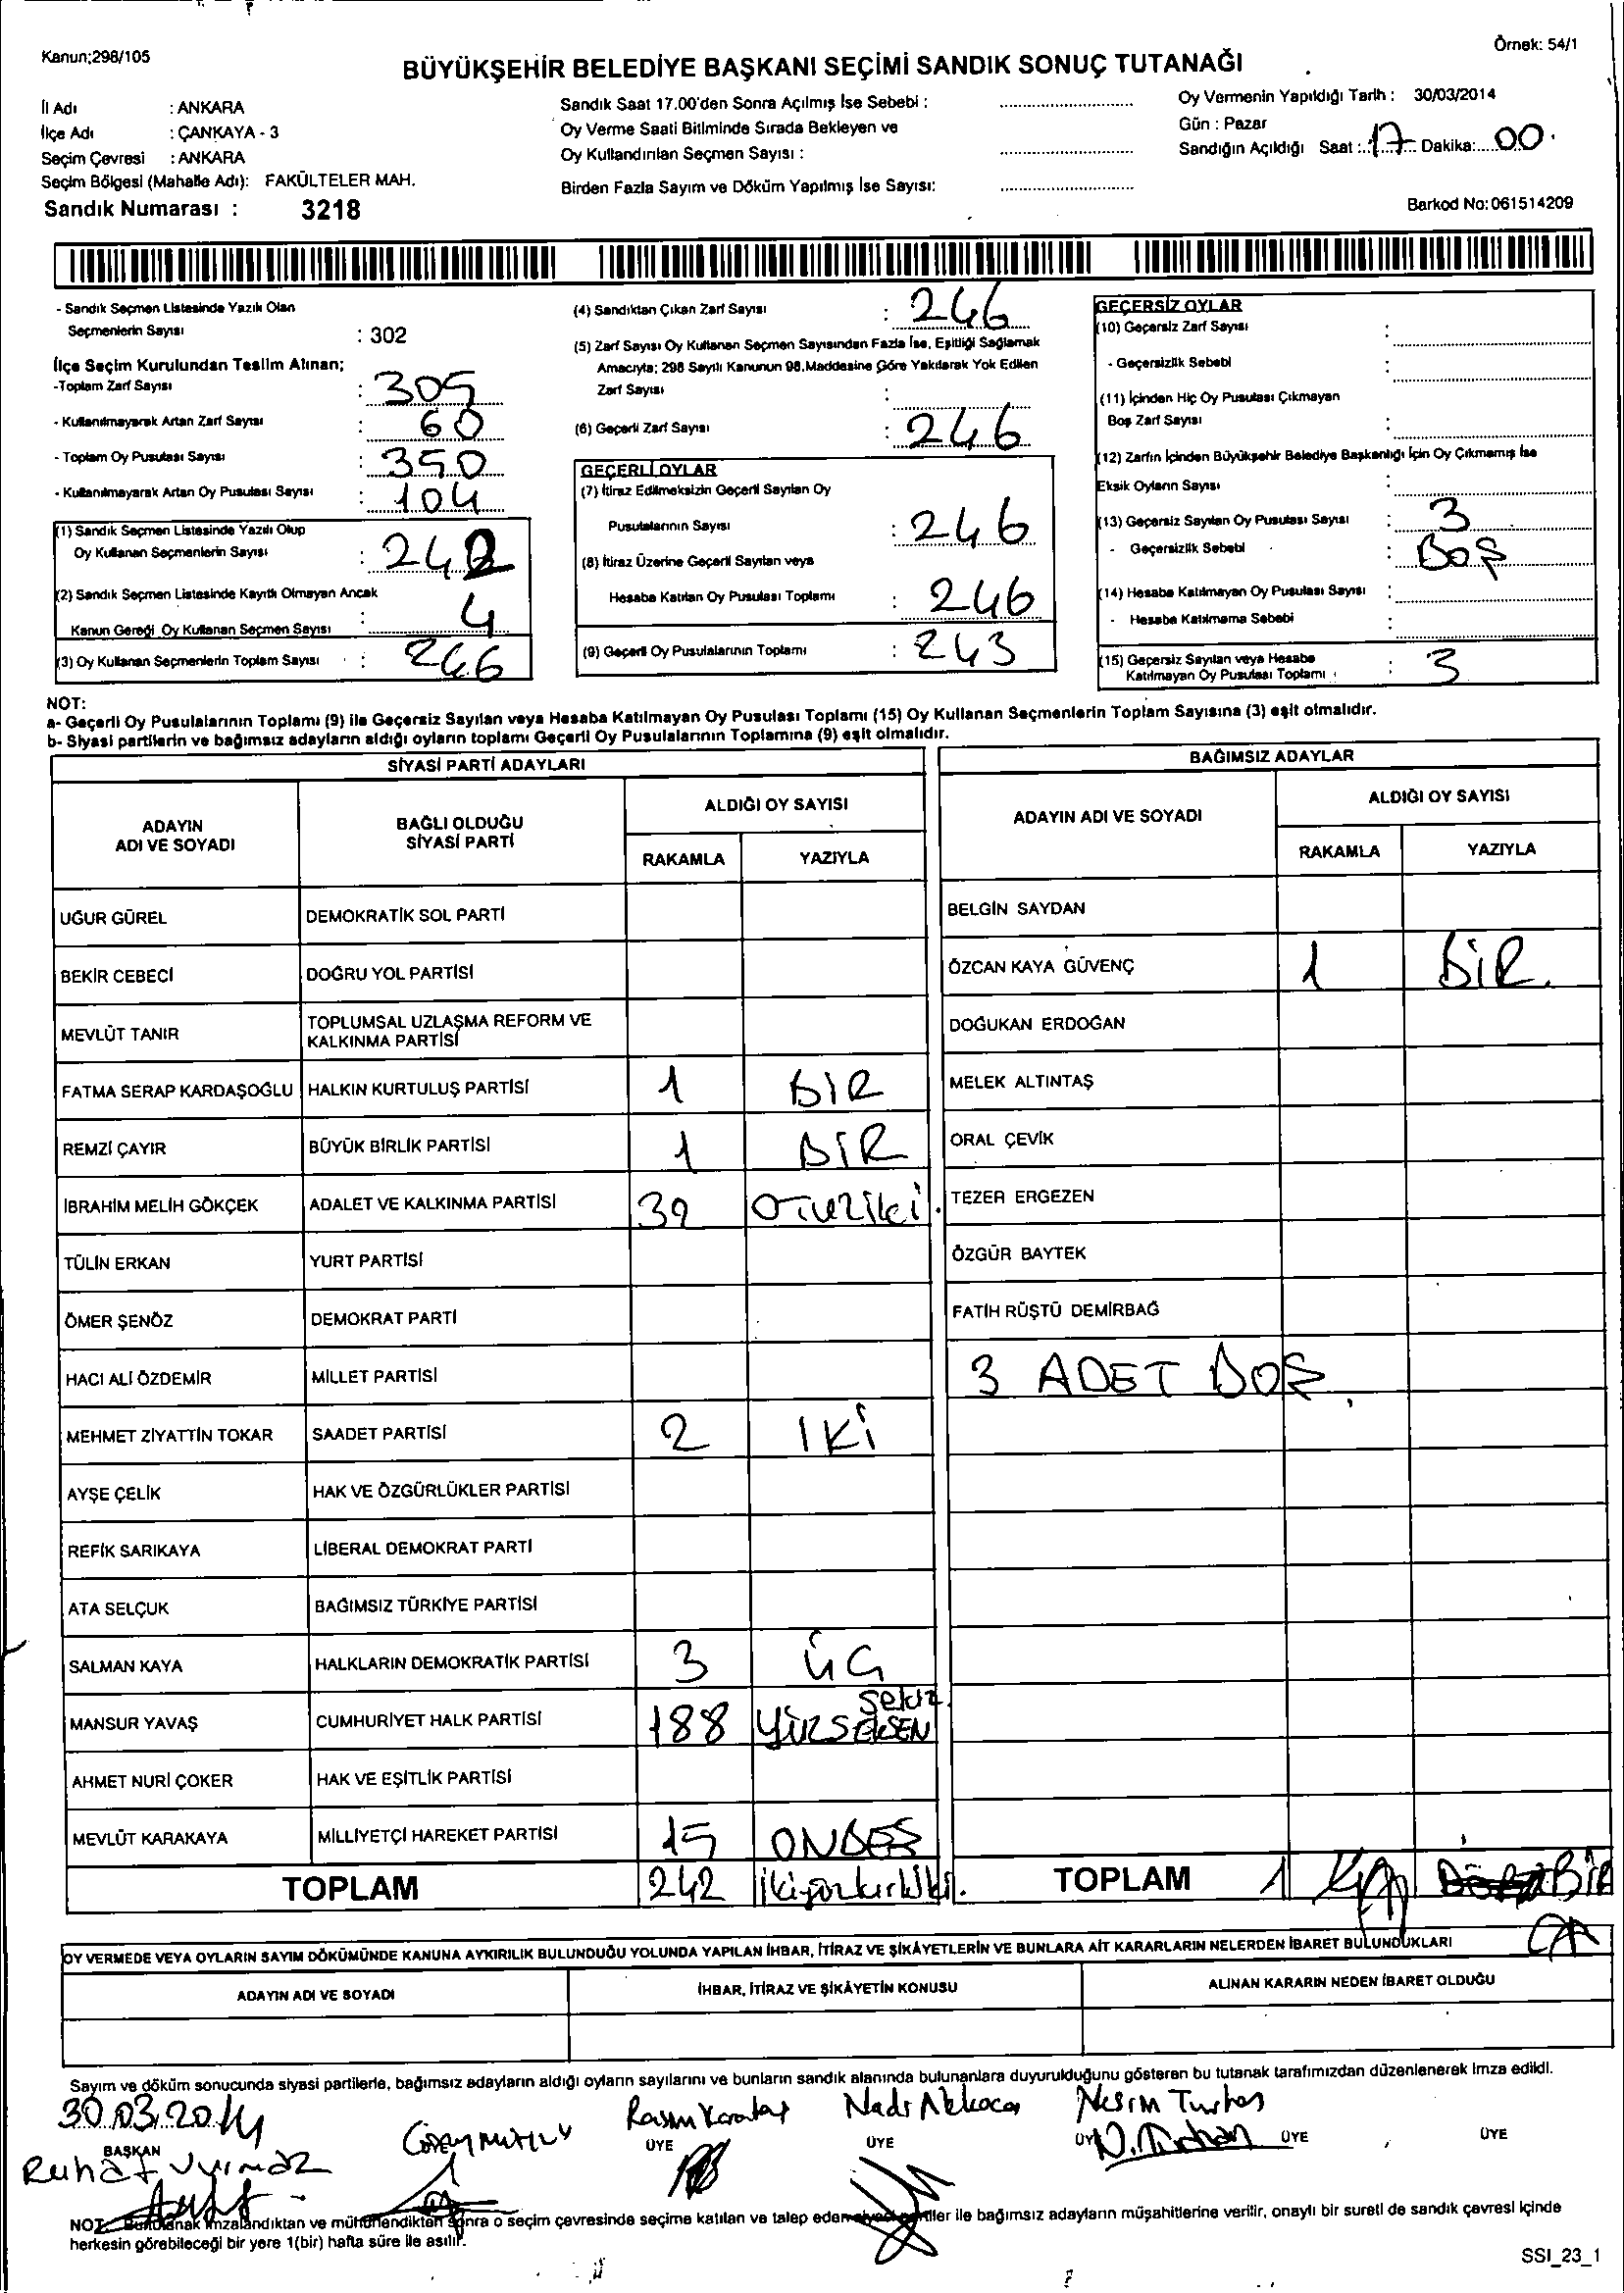 Kanun;298/105
Örnek: 54/1
BÜYÜKŞEHİR BELEDİYE BAŞKANI SEÇİMİ SANDIK SONUÇ TUTANAĞI
İl Adı : ANKARA
İlçe Adı : ÇANKAYA - 3
Seçim Çevresi : ANKARA
Seçim Bölgesi (Mahalle Adı): FAKÜLTELER MAH.
Sandık Numarası : 3218
Sandık Saat 17.00'den Sonra Açılmış İse Sebebi :
Oy Verme Saati Bitiminde Sırada Bekleyen ve
Oy Kullandırılan Seçmen Sayısı :
Birden Fazla Sayım ve Döküm Yapılmış İse Sayısı:
Oy Vermenin Yapıldığı Tarih : 30/03/2014
Gün : Pazar
Sandığın Açıldığı Saat : 17 Dakika: 00
Barkod No: 061514209
- Sandık Seçmen Listesinde Yazılı Olan
Seçmenlerin Sayısı : 302
İlçe Seçim Kurulundan Teslim Alınan;
-Toplam Zarf Sayısı : 305
- Kullanılmayarak Artan Zarf Sayısı : 60
- Toplam Oy Pusulası Sayısı : 350
- Kullanılmayarak Artan Oy Pusulası Sayısı : 104
(1) Sandık Seçmen Listesinde Yazılı Olup
Oy Kullanan Seçmenlerin Sayısı : 242
(2) Sandık Seçmen Listesinde Kayıtlı Olmayan Ancak
Kanun Gereği Oy Kullanan Seçmen Sayısı : 4
(3) Oy Kullanan Seçmenlerin Toplam Sayısı : 246
(4) Sandıktan Çıkan Zarf Sayısı : 246
(5) Zarf Sayısı Oy Kullanan Seçmen Sayısından Fazla İse, Eşitliği Sağlamak
Amacıyla; 298 Sayılı Kanunun 98.Maddesine Göre Yakılarak Yok Edilen
Zarf Sayısı :
(6) Geçerli Zarf Sayısı : 246
GEÇERLİ OYLAR
(7) İtiraz Edilmeksizin Geçerli Sayılan Oy
Pusulalarının Sayısı : 246
(8) İtiraz Üzerine Geçerli Sayılan veya
Hesaba Katılan Oy Pusulası Toplamı : 246
(9) Geçerli Oy Pusulalarının Toplamı : 243
GEÇERSİZ OYLAR
(10) Geçersiz Zarf Sayısı :
- Geçersizlik Sebebi :
(11) İçinden Hiç Oy Pusulası Çıkmayan
Boş Zarf Sayısı :
(12) Zarfın İçinden Büyükşehir Belediye Başkanlığı İçin Oy Çıkmamış İse
Eksik Oyların Sayısı :
(13) Geçersiz Sayılan Oy Pusulası Sayısı : 3
- Geçersizlik Sebebi : BOŞ
(14) Hesaba Katılmayan Oy Pusulası Sayısı :
- Hesaba Katılmama Sebebi :
(15) Geçersiz Sayılan veya Hesaba
Katılmayan Oy Pusulası Toplamı : 3
NOT:
a- Geçerli Oy Pusulalarının Toplamı (9) ile Geçersiz Sayılan veya Hesaba Katılmayan Oy Pusulası Toplamı (15) Oy Kullanan Seçmenlerin Toplam Sayısına (3) eşit olmalıdır.
b- Siyasi partilerin ve bağımsız adayların aldığı oyların toplamı Geçerli Oy Pusulalarının Toplamına (9) eşit olmalıdır.
SİYASİ PARTİ ADAYLARI
ADAYIN ADI VE SOYADI
BAĞLI OLDUĞU SİYASİ PARTİ
ALDIĞI OY SAYISI
RAKAMLA YAZIYLA
UĞUR GÜREL DEMOKRATİK SOL PARTİ
BEKİR CEBECİ DOĞRU YOL PARTİSİ
MEVLÜT TANIR TOPLUMSAL UZLAŞMA REFORM VE KALKINMA PARTİSİ
FATMA SERAP KARDAŞOĞLU HALKIN KURTULUŞ PARTİSİ 1 BİR
REMZİ ÇAYIR BÜYÜK BİRLİK PARTİSİ 1 BİR
İBRAHİM MELİH GÖKÇEK ADALET VE KALKINMA PARTİSİ 32 OTUZİKİ
TÜLİN ERKAN YURT PARTİSİ
ÖMER ŞENÖZ DEMOKRAT PARTİ
HACI ALİ ÖZDEMİR MİLLET PARTİSİ
MEHMET ZİYATTİN TOKAR SAADET PARTİSİ 2 İKİ
AYŞE ÇELİK HAK VE ÖZGÜRLÜKLER PARTİSİ
REFİK SARIKAYA LİBERAL DEMOKRAT PARTİ
ATA SELÇUK BAĞIMSIZ TÜRKİYE PARTİSİ
SALMAN KAYA HALKLARIN DEMOKRATİK PARTİSİ 3 ÜÇ
MANSUR YAVAŞ CUMHURİYET HALK PARTİSİ 188 YÜZSEKSEN Sekiz
AHMET NURİ ÇOKER HAK VE EŞİTLİK PARTİSİ
MEVLÜT KARAKAYA MİLLİYETÇİ HAREKET PARTİSİ 15 ONBEŞ
TOPLAM 242 ikiyüzkırkiki
BAĞIMSIZ ADAYLAR
ADAYIN ADI VE SOYADI
ALDIĞI OY SAYISI
RAKAMLA YAZIYLA
BELGİN SAYDAN
ÖZCAN KAYA GÜVENÇ 1 BİR
DOĞUKAN ERDOĞAN
MELEK ALTINTAŞ
ORAL ÇEVİK
TEZER ERGEZEN
ÖZGÜR BAYTEK
FATİH RÜŞTÜ DEMİRBAĞ
3 ADET BOŞ
TOPLAM 1 BİR
OY VERMEDE VEYA OYLARIN SAYIM DÖKÜMÜNDE KANUNA AYKIRILIK BULUNDUĞU YOLUNDA YAPILAN İHBAR, İTİRAZ VE ŞİKÂYETLERİN VE BUNLARA AİT KARARLARIN NELERDEN İBARET BULUNDUKLARI
ADAYIN ADI VE SOYADI
İHBAR, İTİRAZ VE ŞİKÂYETİN KONUSU
ALINAN KARARIN NEDEN İBARET OLDUĞU
Sayım ve döküm sonucunda siyasi partilerle, bağımsız adayların aldığı oyların sayılarını ve bunların sandık alanında bulunanlara duyurulduğunu gösteren bu tutanak tarafımızdan düzenlenerek imza edildi.
30.03.2014
BAŞKAN ÜYE ÜYE ÜYE ÜYE ÜYE
NOT: Bu tutanak imzalandıktan ve mühürlendikten sonra o seçim çevresinde seçime katılan ve talep eden siyasi partiler ile bağımsız adayların müşahitlerine verilir, onaylı bir sureti de sandık çevresi içinde
herkesin görebileceği bir yere 1(bir) hafta süre ile asılır.
SSI_23_1